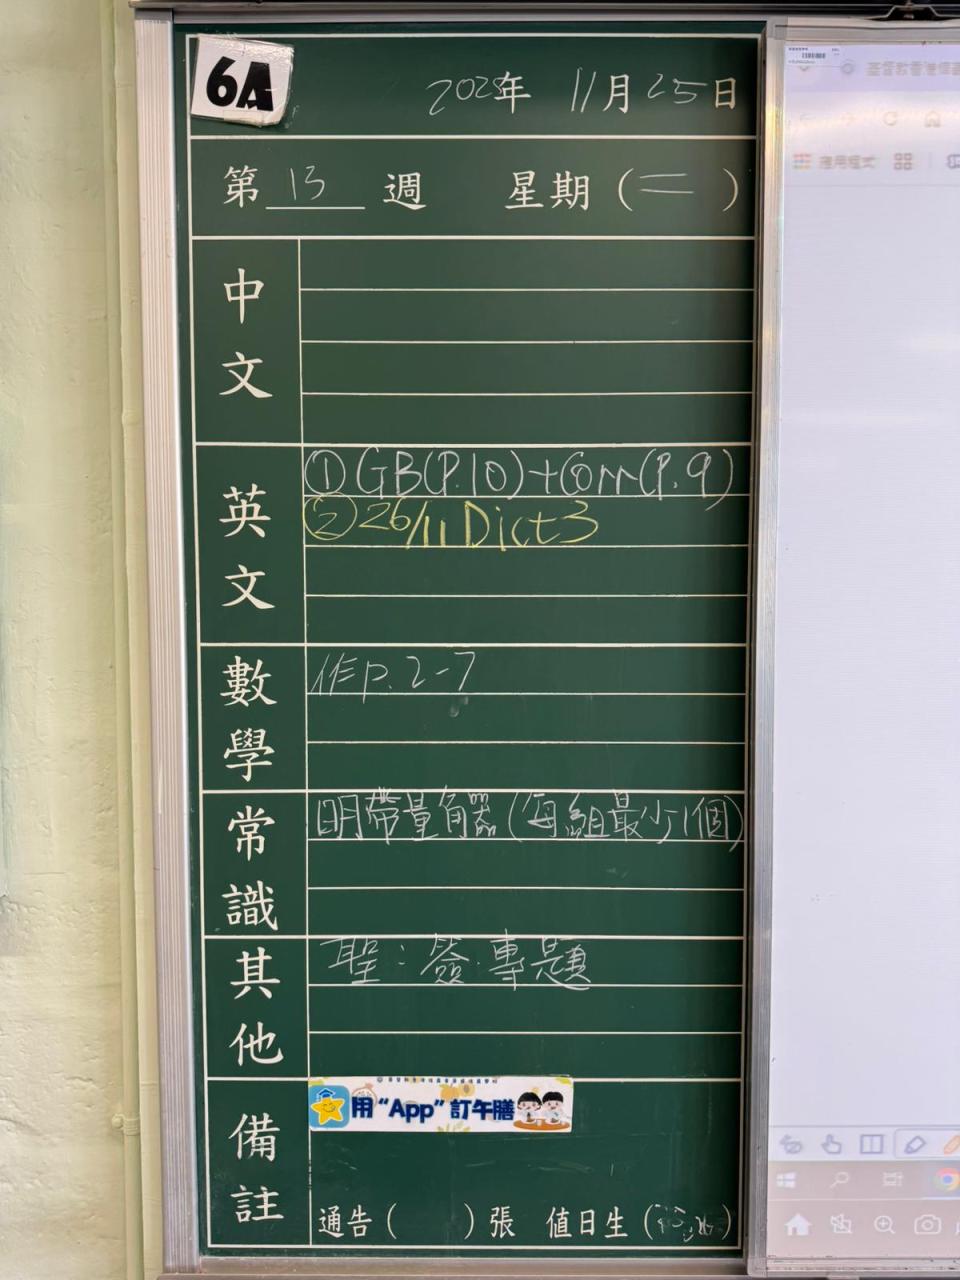 6A
2025年 11月25日
第 13 週 星期(二)
中文
英文
①GB(P.10)+Corr(P.9)
②26/11 Dict3
數學
作P.2-7
常識
明帶量角器(每組最少1個)
其他
聖:簽.專題
備註
用“App”訂午膳
通告( )張 值日生( )